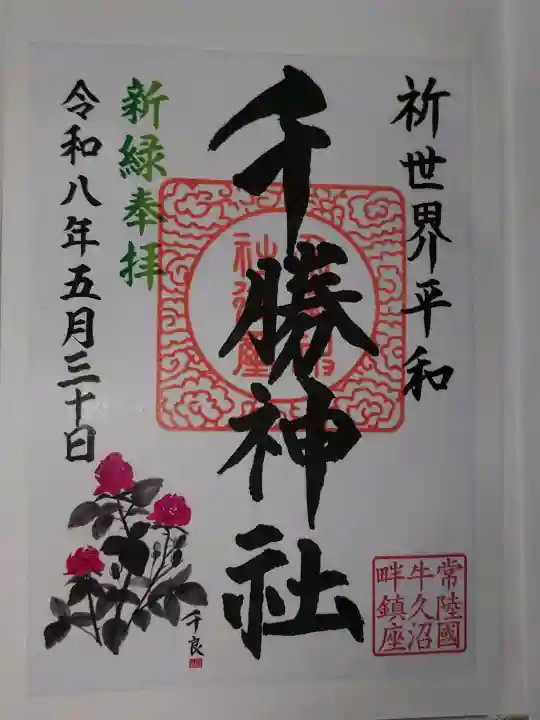 祈世界平和
千勝神社
新緑奉拝
令和八年五月三十日
常陸國
牛久沼
畔鎮座
千良